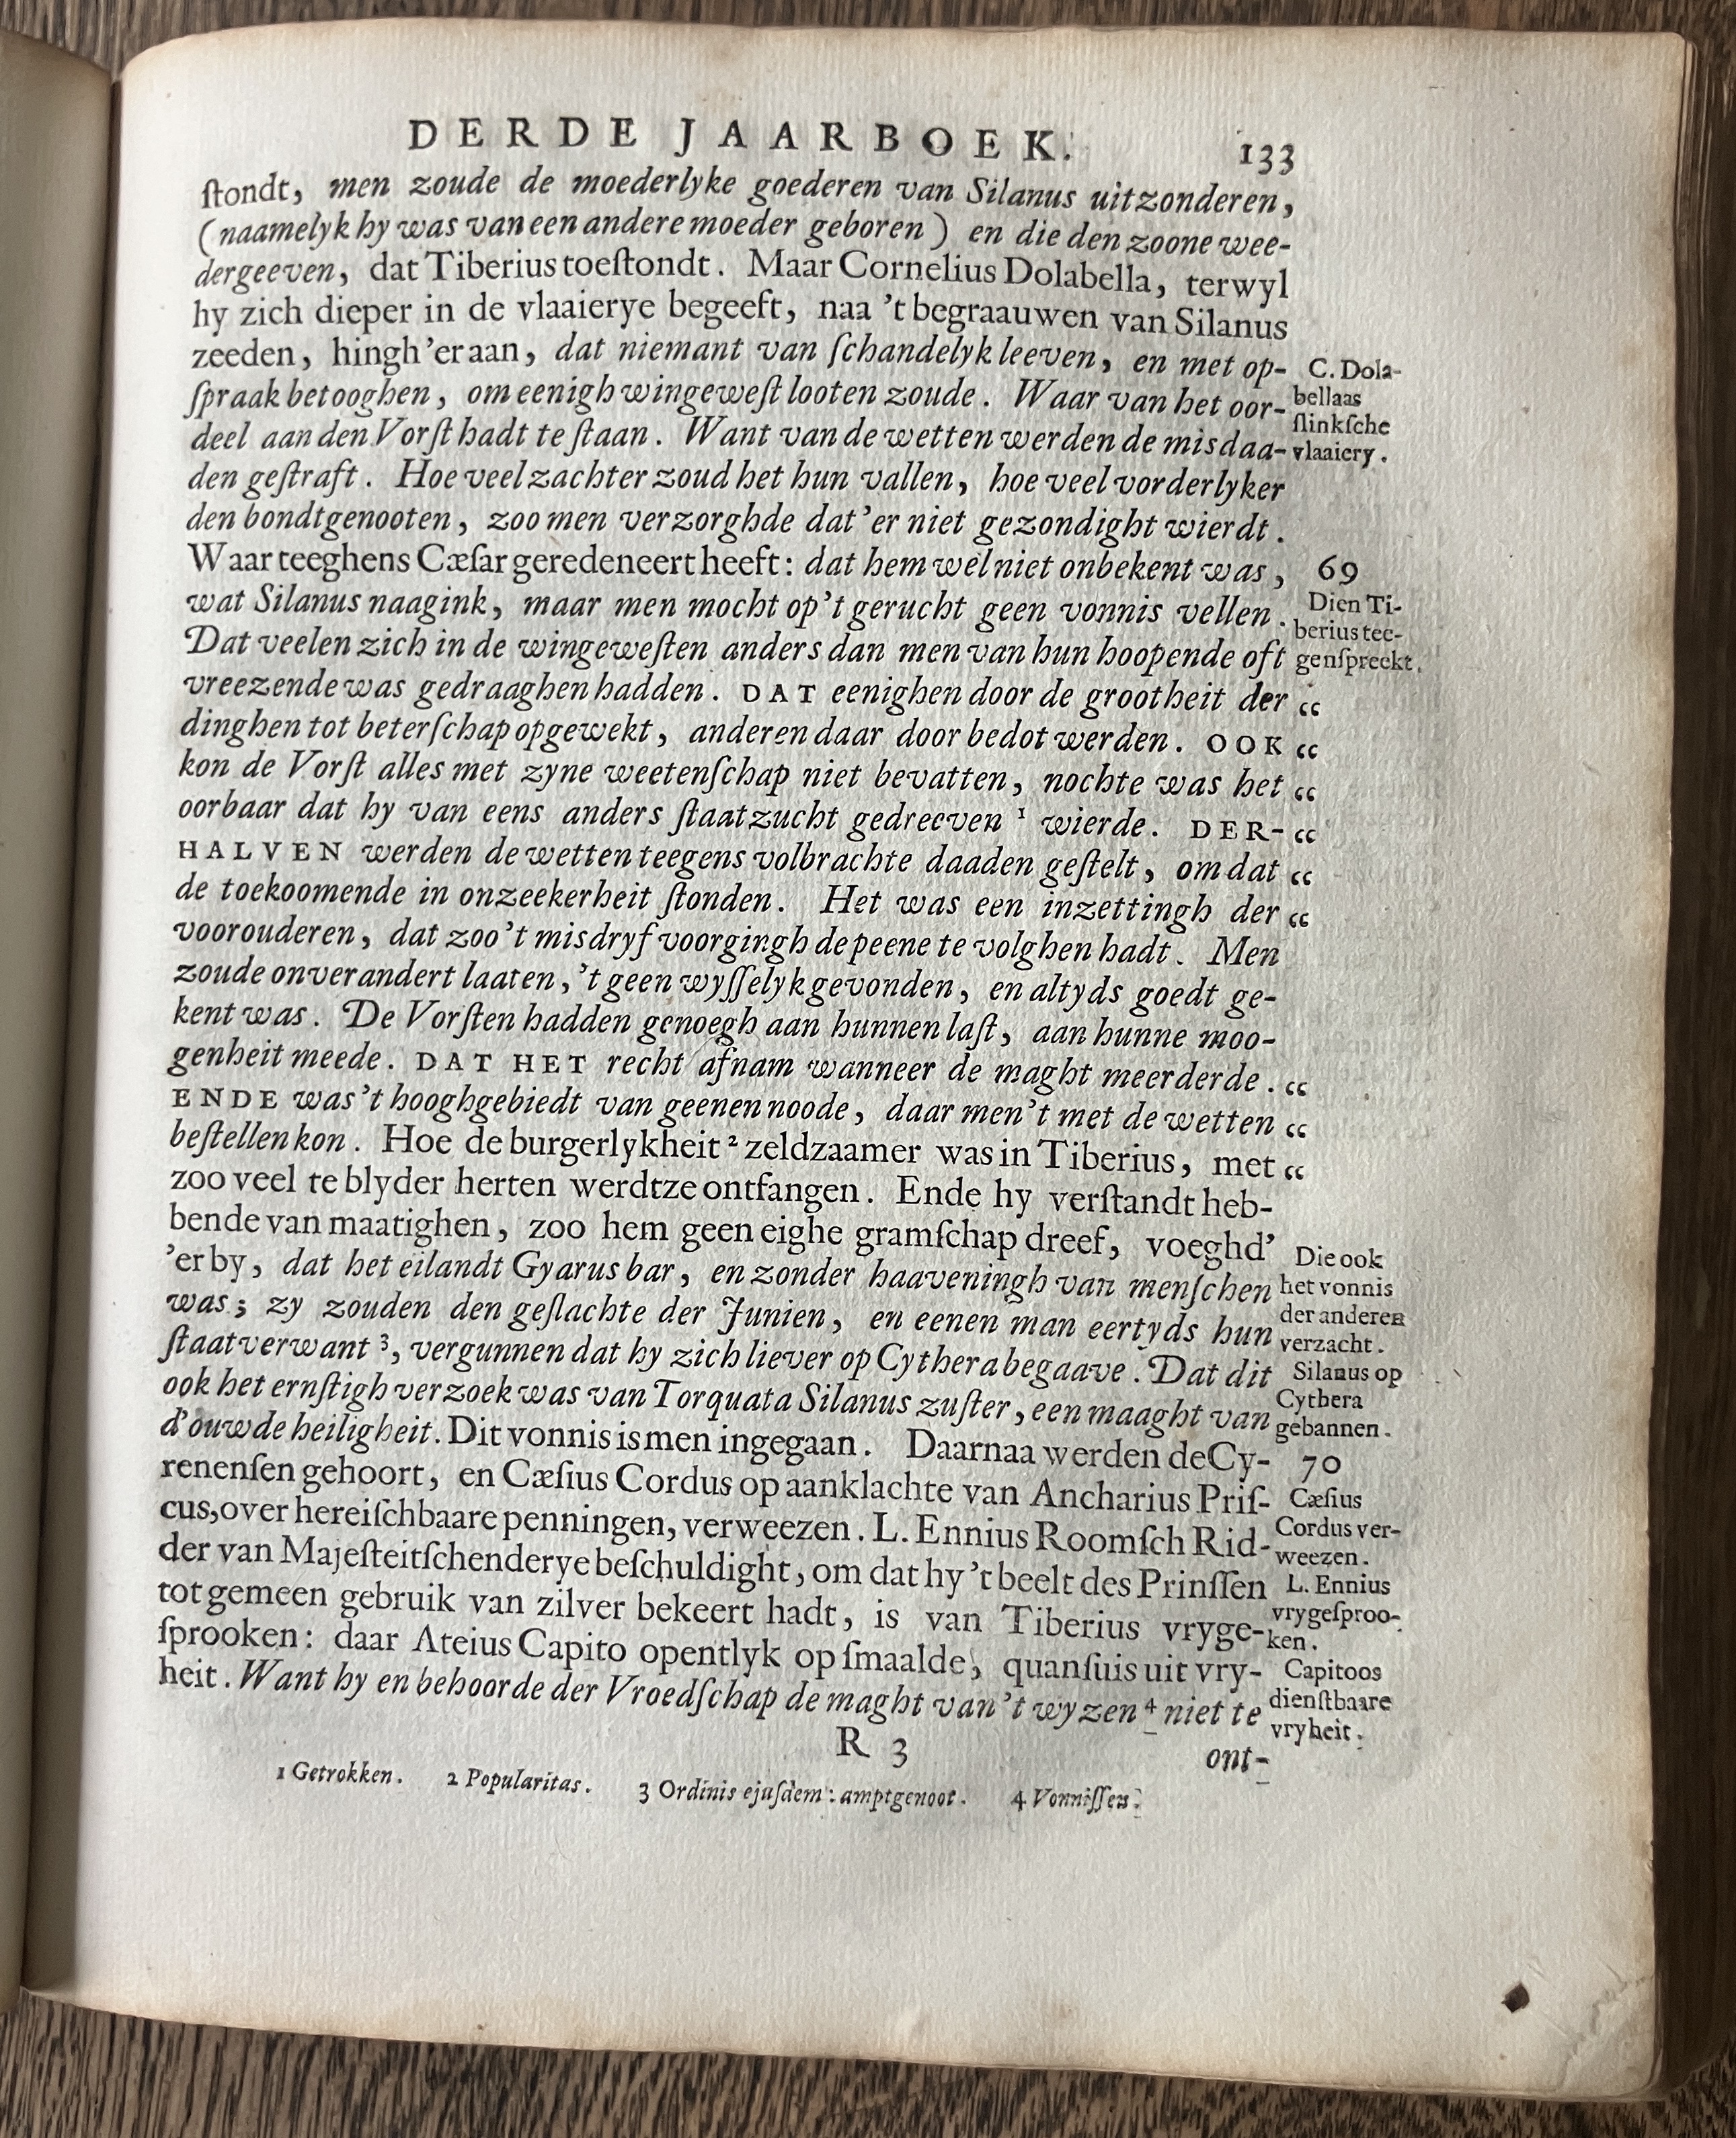 DERDE JAARBOEK. 133
ſtondt, men zoude de moederlyke goederen van Silanus uitzonderen,
(naamelyk hy was van een andere moeder geboren) en die den zoone wee-
dergeeven, dat Tiberius toeſtondt. Maar Cornelius Dolabella, terwyl
hy zich dieper in de vlaaierye begeeft, naa 't begraauwen van Silanus
zeeden, hingh 'er aan, dat niemant van ſchandelyk leeven, en met op-
ſpraak betooghen, om eenigh wingeweſt looten zoude. Waar van het oor-
deel aan den Vorſt hadt te ſtaan. Want van de wetten werden de misdaa-
den geſtraft. Hoe veel zachter zoud het hun vallen, hoe veel vorderlyker
den bondtgenooten, zoo men verzorghde dat 'er niet gezondight wierdt.
C. Dola-
bellaas
ſlinkſche
vlaaiery.
Waar teeghens Cæſar geredeneert heeft: dat hem wel niet onbekent was,
wat Silanus naagink, maar men mocht op 't gerucht geen vonnis vellen.
Dat veelen zich in de wingeweſten anders dan men van hun hoopende oft
vreezende was gedraaghen hadden. DAT eenighen door de grootheit der “
dinghen tot beterſchap opgewekt, anderen daar door bedot werden. OOK “
kon de Vorſt alles met zyne weetenſchap niet bevatten, nochte was het “
oorbaar dat hy van eens anders ſtaatzucht gedreeven ¹ wierde. DER- “
HALVEN werden de wetten teegens volbrachte daaden geſtelt, om dat “
de toekoomende in onzeekerheit ſtonden. Het was een inzettingh der “
voorouderen, dat zoo 't misdryf voorgingh de peene te volghen hadt. Men
zoude onverandert laaten, 't geen wyſſelyk gevonden, en altyds goedt ge-
kent was. De Vorſten hadden genoegh aan hunnen laſt, aan hunne moo-
genheit meede. DAT HET recht afnam wanneer de maght meerderde. “
ENDE was 't hooghgebiedt van geenen noode, daar men 't met de wetten “
beſtellen kon. Hoe de burgerlykheit ² zeldzaamer was in Tiberius, met “
zoo veel te blyder herten werdtze ontfangen. Ende hy verſtandt heb-
bende van maatighen, zoo hem geen eighe gramſchap dreef, voeghd'
'er by, dat het eilandt Gyarus bar, en zonder haaveningh van menſchen
was; zy zouden den geſlachte der Junien, en eenen man eertyds hun
ſtaatverwant ³, vergunnen dat hy zich liever op Cythera begaave. Dat dit
ook het ernſtigh verzoek was van Torquata Silanus zuſter, een maaght van
d'ouwde heiligheit. Dit vonnis is men ingegaan. Daarnaa werden de Cy-
renenſen gehoort, en Cæſius Cordus op aanklachte van Ancharius Priſ-
cus, over hereiſchbaare penningen, verweezen. L. Ennius Roomſch Rid-
der van Majeſteitſchenderye beſchuldight, om dat hy 't beelt des Prinſſen
tot gemeen gebruik van zilver bekeert hadt, is van Tiberius vryge-
ſprooken: daar Ateius Capito opentlyk op ſmaalde, quanſuis uit vry-
heit. Want hy en behoorde der Vroedſchap de maght van 't wyzen ⁴ niet te
69
Dien Ti-
berius tee-
genſpreekt.
Die ook
het vonnis
der anderen
verzacht.
Silanus op
Cythera
gebannen.
70
Cæſius
Cordus ver-
weezen.
L. Ennius
vrygeſproo-
ken.
Capitoos
dienſtbaare
vryheit.
R 3 ont-
1 Getrokken. 2 Popularitas. 3 Ordinis ejuſdem: amptgenoot. 4 Vonniſſen.